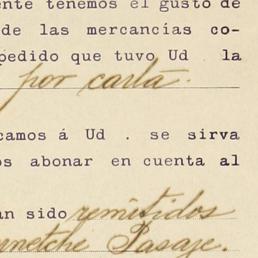 ente tenemos el gusto de
de las mercancías co-
pedido que tuvo Ud la
por carta.
camos á Ud . se sirva
os abonar en cuenta al
an sido remitidos
Pasaje.